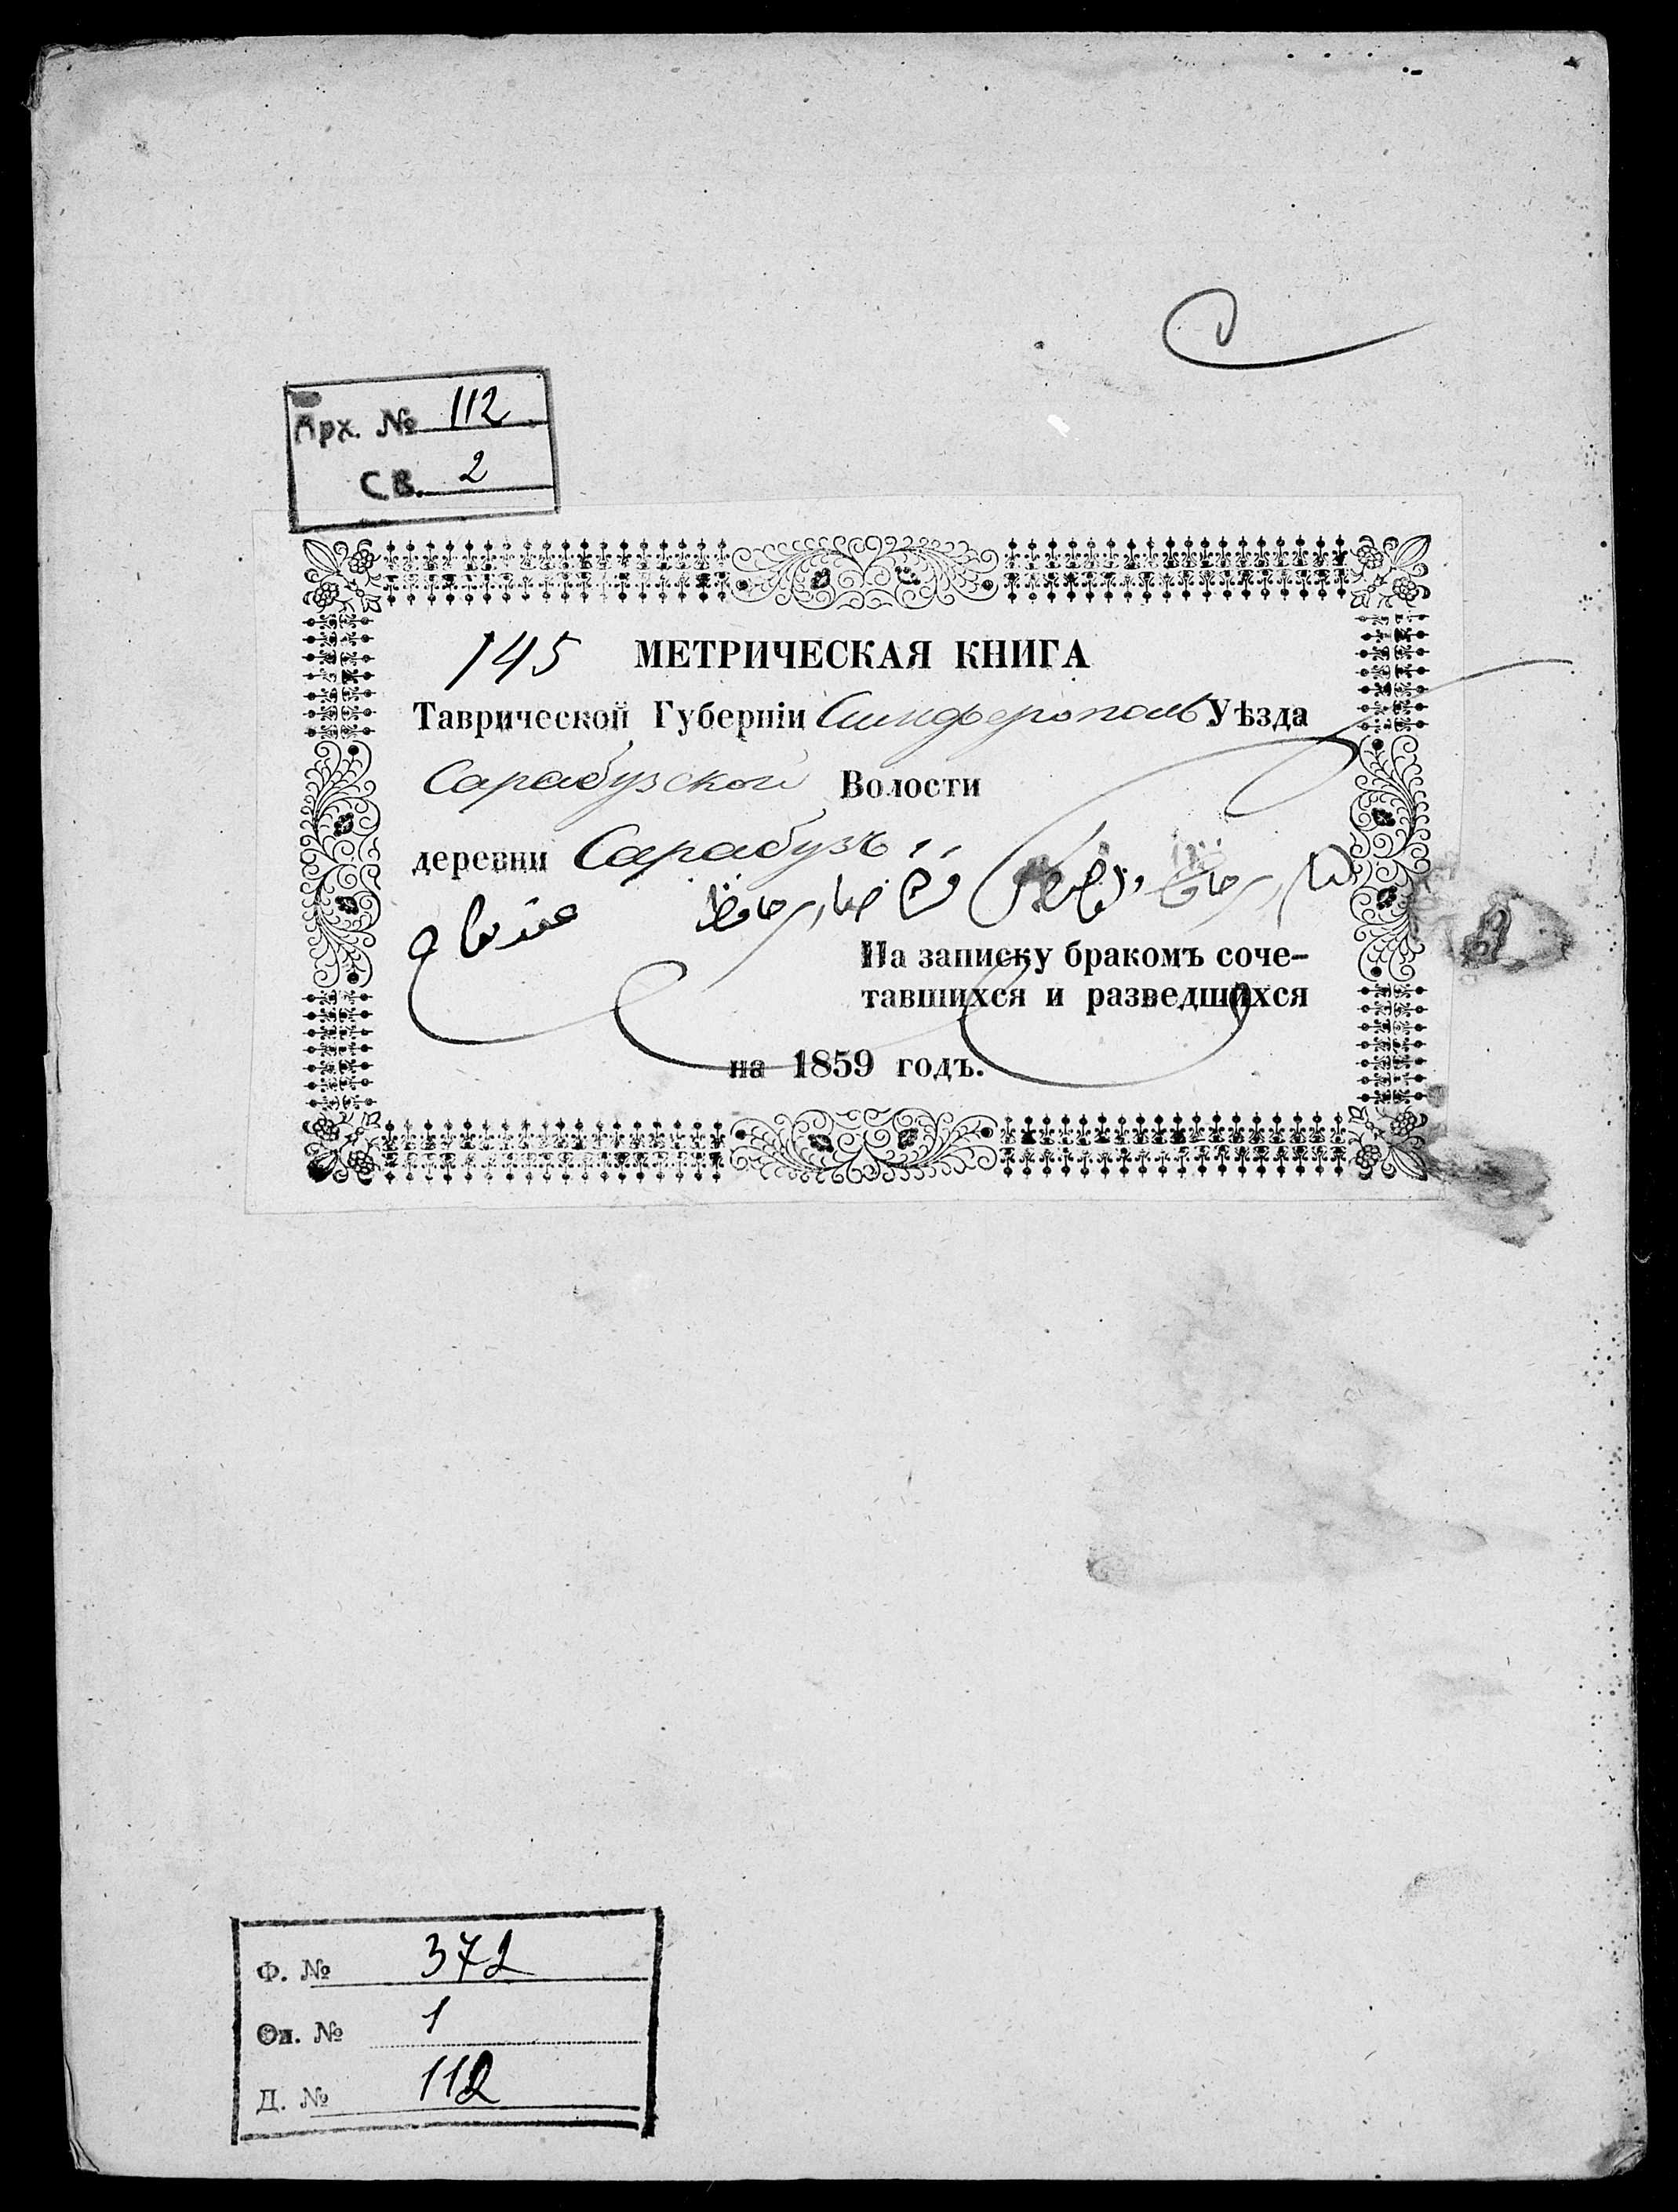 Арх. № 112
СВ. 2
145 МЕТРИЧЕСКАЯ КНИГА
Таврической Губерніи Симферополь Уѣзда
Сарабузской Волости
деревни Сарабузъ
عقد نكاح
На записку бракомъ соче-
тавшихся и разведшихся
на 1859 годъ.
Ф. № 372
Оп. № 1
Д. № 112